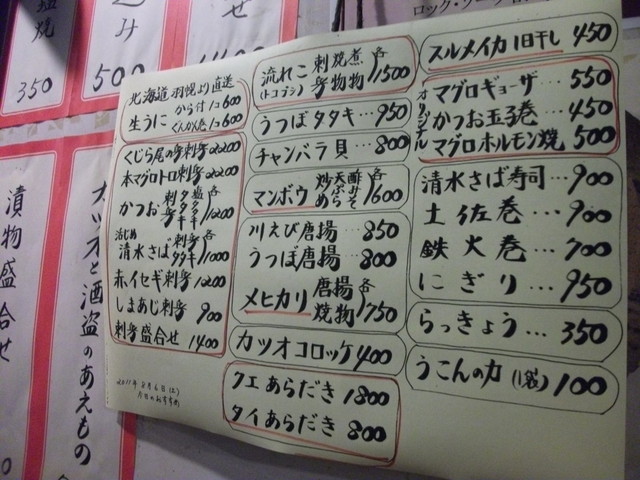 スルメイカ 1日干し 450
オリジナル
マグロギョーザ… 550
かつお玉子巻… 450
マグロホルモン焼 500
清水さば寿司… 900
土佐巻… 900
鉄火巻… 700
にぎり… 950
らっきょう… 350
うこんの力(1袋) 100
流れこ(トコブシ) 刺身 焼物 煮物 各1500
うつぼタタキ… 950
チャンバラ貝… 800
マンボウ 炒め 天ぷら 酢みそ 各1600
川えび唐揚… 850
うつぼ唐揚… 800
メヒカリ 唐揚 焼物 各750
カツオコロッケ 400
クエあらだき 1800
タイあらだき 800
北海道 羽幌より直送
生うに から付 1コ600
ぐんかん巻 1コ600
くじら尾の身刺身 2200
本マグロトロ刺身 2200
かつお 刺身 タタキ 塩タタキ 各1200
活じめ
清水さば 刺身 タタキ 各1000
赤イセギ刺身 1200
しまあじ刺身 900
刺身盛合せ 1400
本日のおすすめ
350
500
カツオと酒盗のあえもの
漬物盛合せ